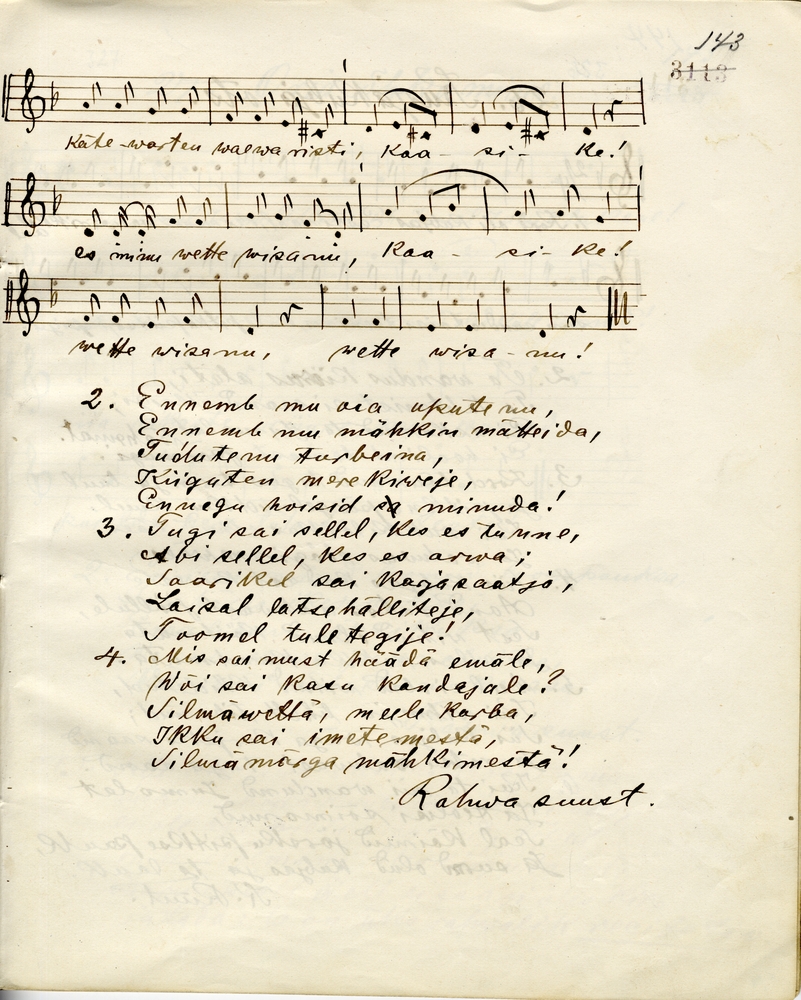 143
3113
Käte-warten waewaristi, Kaa - si - Ke!
es minu wette wisanu, Kaa - si - Ke!
wette wisanu, wette wisa - nu!
2. Ennemb mu oia uputenu,
Ennemb mu mähkin mätteida,
Tudutenu turbeina,
Kiiguten mere kiweje,
Ennegu hoisid sa minuda!
3. Tugi sai sellel, Kes es tunne,
Abi sellel, Kes es arwa;
Saarikel sai Karjasaatja,
Laisal latsehälliteje,
Toomel tuletegije!
4. Mis sai must häädä emäle,
Wõi sai Kasu Kandajale?
Silmäwettä, meele Karba,
Ikku sai imetemestä,
Silmä märga mähkimestä!
Rahwa suust.